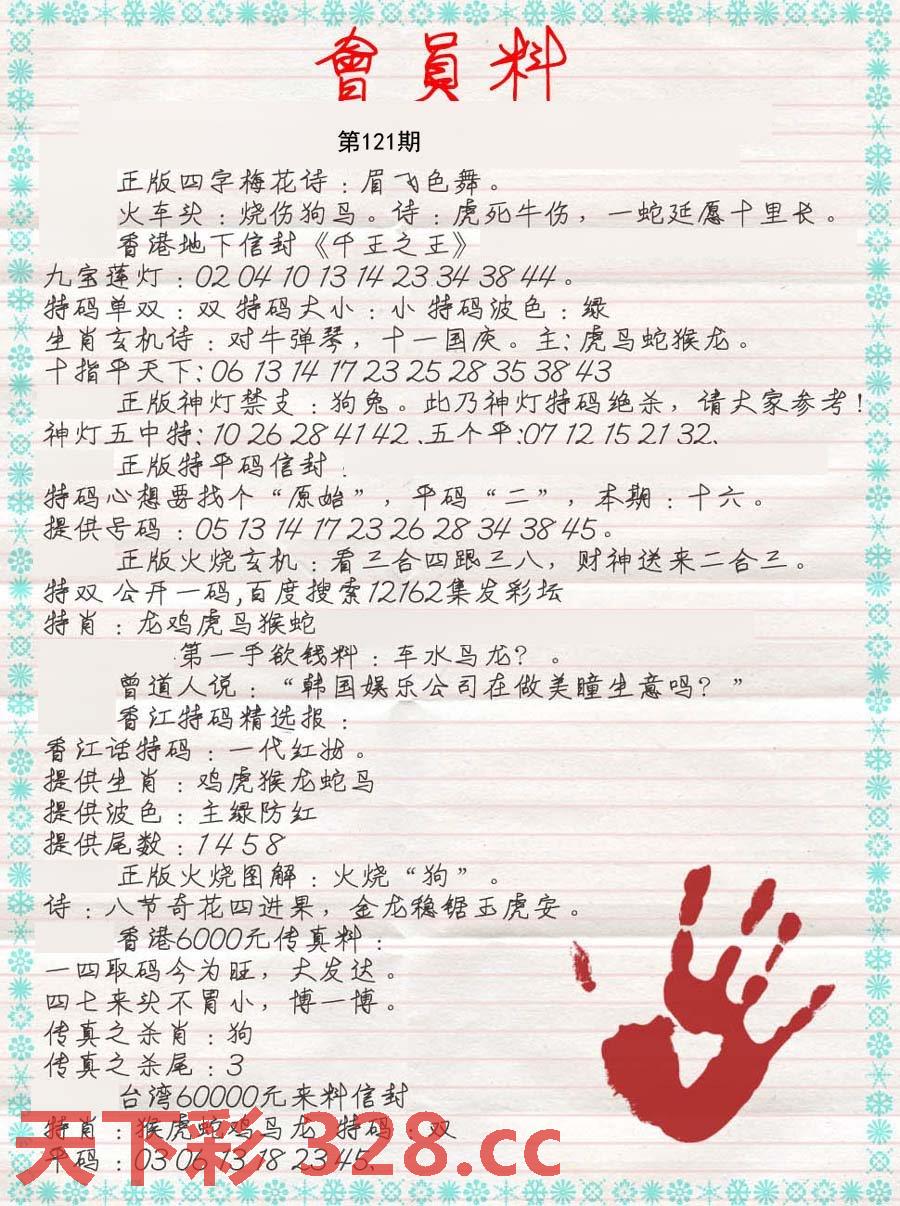 會員料
第121期
正版四字梅花诗：眉飞色舞。
火车头：烧伤狗鸟。诗：虎死牛伤，一蛇延愿十里长。
香港地下信封《千王之王》
九宝莲灯：02 04 10 13 14 23 34 38 44。
特码单双：双 特码大小：小 特码波色：绿
生肖玄机诗：对牛弹琴，十一国庆。主：虎马蛇猴龙。
十指平天下：06 13 14 17 23 25 28 35 38 43
正版神灯禁支：狗兔。此乃神灯特码绝杀，请大家参考！
神灯五中特：10 26 28 41 42 .五个平:07 12 15 21 32.
正版特平码信封：
特码心想要找个“原始”，平码“二”，本期：十六。
提供号码：05 13 14 17 23 26 28 34 38 45。
正版火烧玄机：看三合四跟三八，财神送来二合三。
特双 公开一码,百度搜索12162集发彩坛
特肖：龙鸡虎马猴蛇
.第一手欲钱料：车水马龙？。
曾道人说：“韩国娱乐公司在做美瞳生意吗？”
香江特码精选报：
香江话特码：一代红妆。
提供生肖：鸡虎猴龙蛇马
提供波色：主绿防红
提供尾数：1 4 5 8
正版火烧图解：火烧“狗”。
诗：八节奇花四进果，金龙稳锯玉虎安。
香港6000元传真料：
一四取码今为旺，大发达。
四七来头不冒小，博一博。
传真之杀肖：狗
传真之杀尾：3
台湾60000元来料信封
特肖：猴虎蛇鸡马龙 特码：双
平码：03 06 13 18 23 45.
天下彩 328.cc